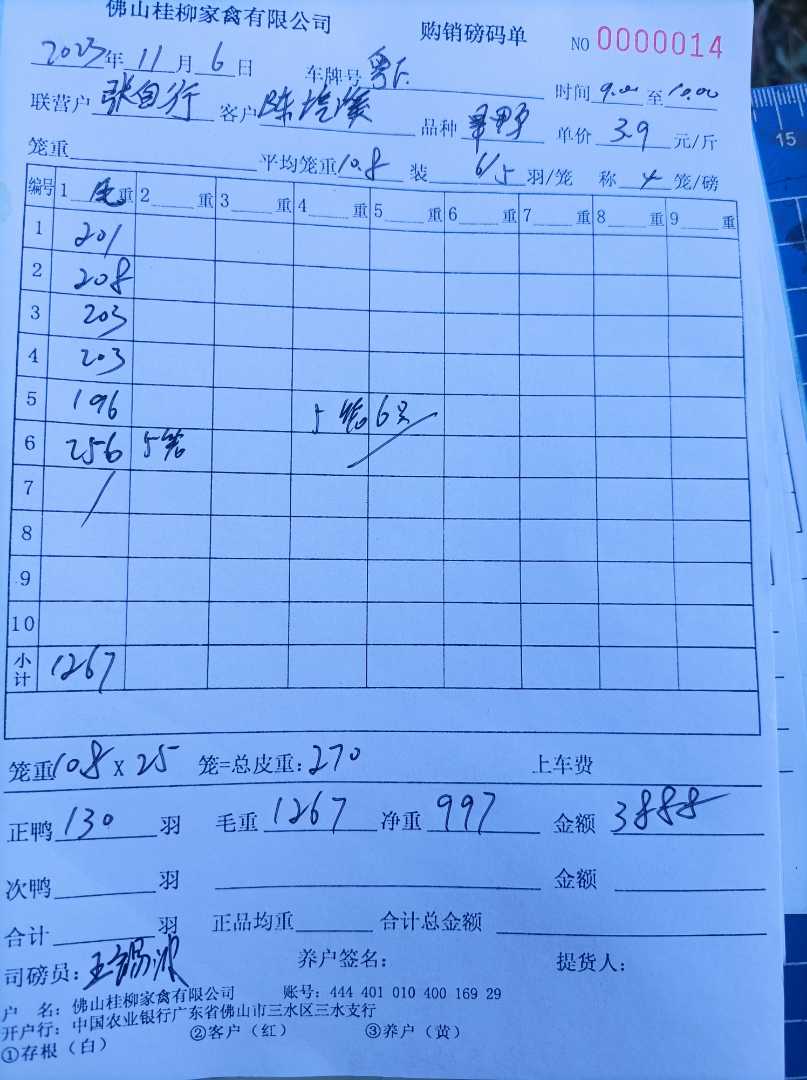 佛山桂柳家禽有限公司 购销磅码单 NO 0000014
2023年 11月 6日 车牌号 粤 时间 9.00 至 10.00
联营户 张自行 客户 陈 品种 单价 3.9 元/斤
笼重 平均笼重 10.8 装 6/5 羽/笼 称 4 笼/磅
编号 1 毛 重 2 重 3 重 4 重 5 重 6 重 7 重 8 重 9 重
1 201
2 208
3 203
4 203
5 196 5笼6只
6 256 5笼
7 /
8
9
10
小计 1267
笼重 10.8 X 25 笼=总皮重: 270 上车费
正鸭 130 羽 毛重 1267 净重 997 金额 3888
次鸭 羽 金额
合计 羽 正品均重 合计总金额
司磅员: 王锡波 养户签名: 提货人:
户 名: 佛山桂柳家禽有限公司 账号: 444 401 010 400 169 29
开户行: 中国农业银行广东省佛山市三水区三水支行
①存根(白) ②客户(红) ③养户(黄)
15